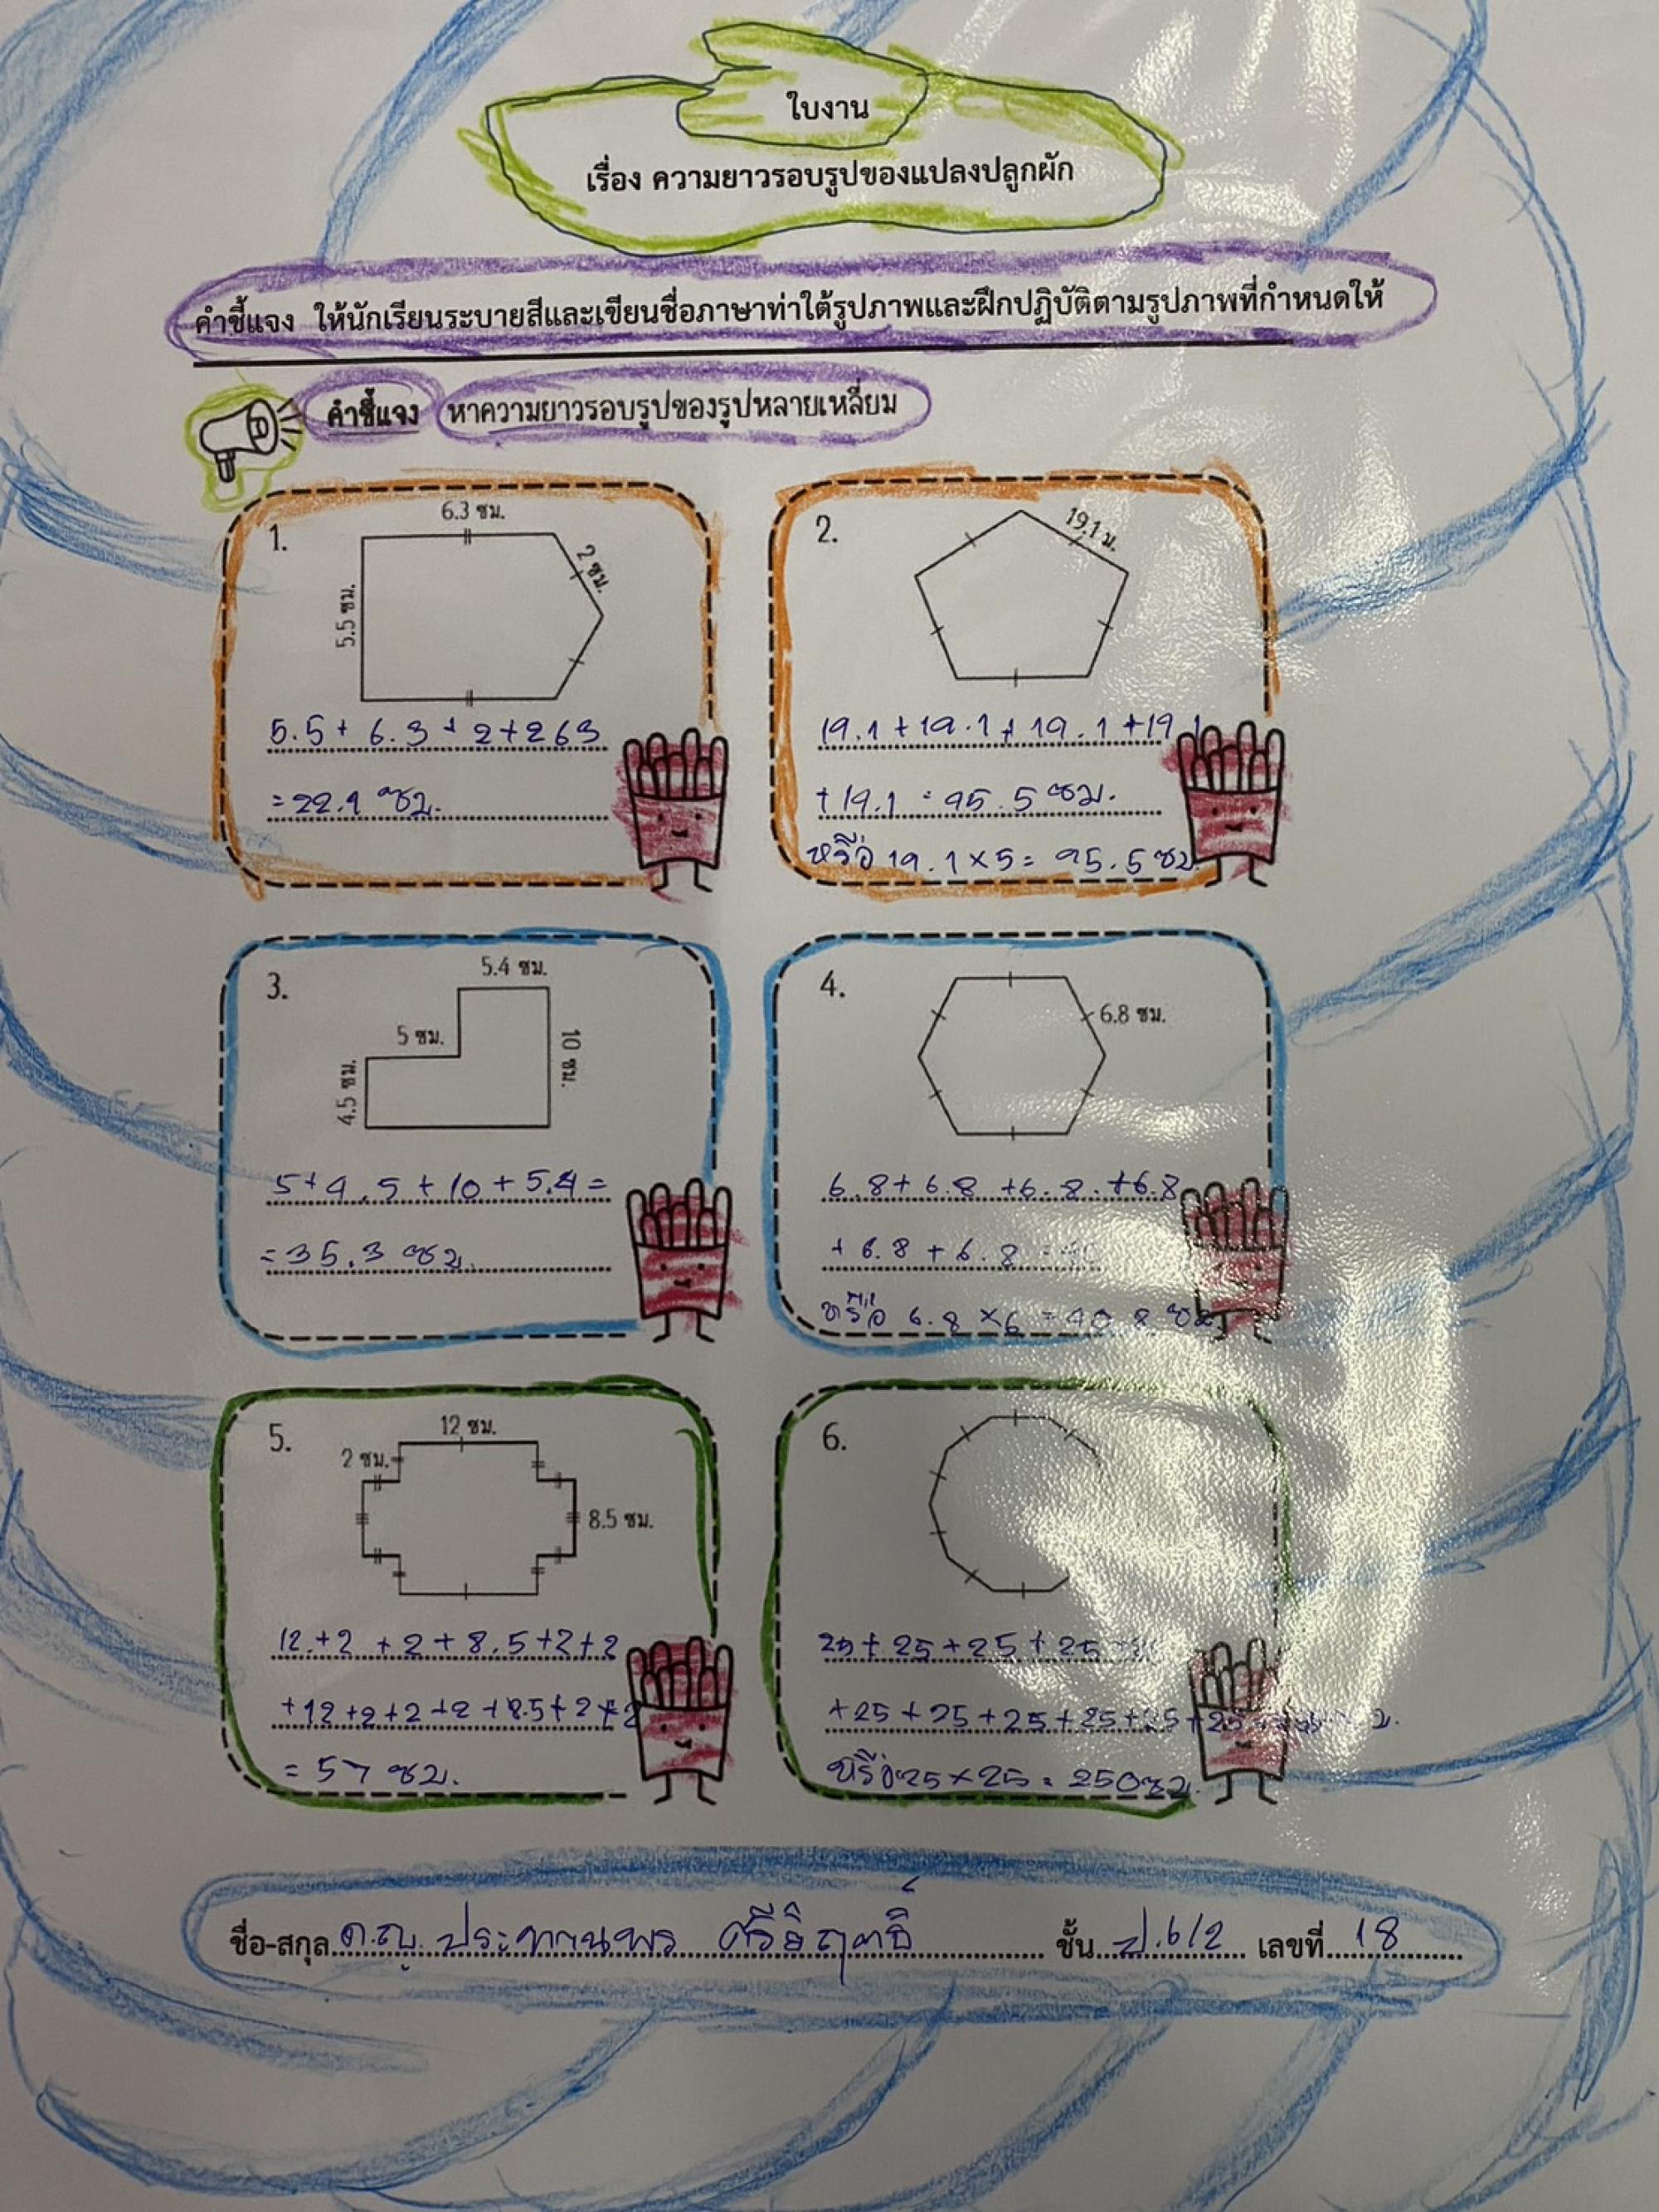 ใบงาน
เรื่อง ความยาวรอบรูปของแปลงปลูกผัก
คำชี้แจง ให้นักเรียนระบายสีและเขียนชื่อภาษาท่าใต้รูปภาพและฝึกปฏิบัติตามรูปภาพที่กำหนดให้
คำชี้แจง หาความยาวรอบรูปของรูปหลายเหลี่ยม
1.
6.3 ซม.
2 ซม.
5.5 ซม.
5.5 + 6.3 + 2 + 2 6 3
= 22.1 ซม.
2.
19.1 ม.
19.1 + 19.1 + 19.1 + 19.1
+ 19.1 = 95.5 ซม.
หรือ 19.1 × 5 = 95.5 ซม
3.
5.4 ซม.
5 ซม.
10 ซม.
4.5 ซม.
5 + 4.5 + 10 + 5.4 =
= 35.3 ซม.
4.
6.8 ซม.
6.8 + 6.8 + 6.8 + 6.8
+ 6.8 + 6.8 =
หรือ 6.8 × 6 = 40.8 ซม.
5.
12 ซม.
2 ซม.
8.5 ซม.
12 + 2 + 2 + 8.5 + 2 + 2
+ 12 + 2 + 2 + 2 + 8.5 + 2 + 2
= 57 ซม.
6.
25 + 25 + 25 + 25
+ 25 + 25 + 25 + 25 + 25 + 25
หรือ 25 × 25 = 250 ซม.
ชื่อ-สกุล ด.ญ. ชั้น ป.6/2 เลขที่ 18